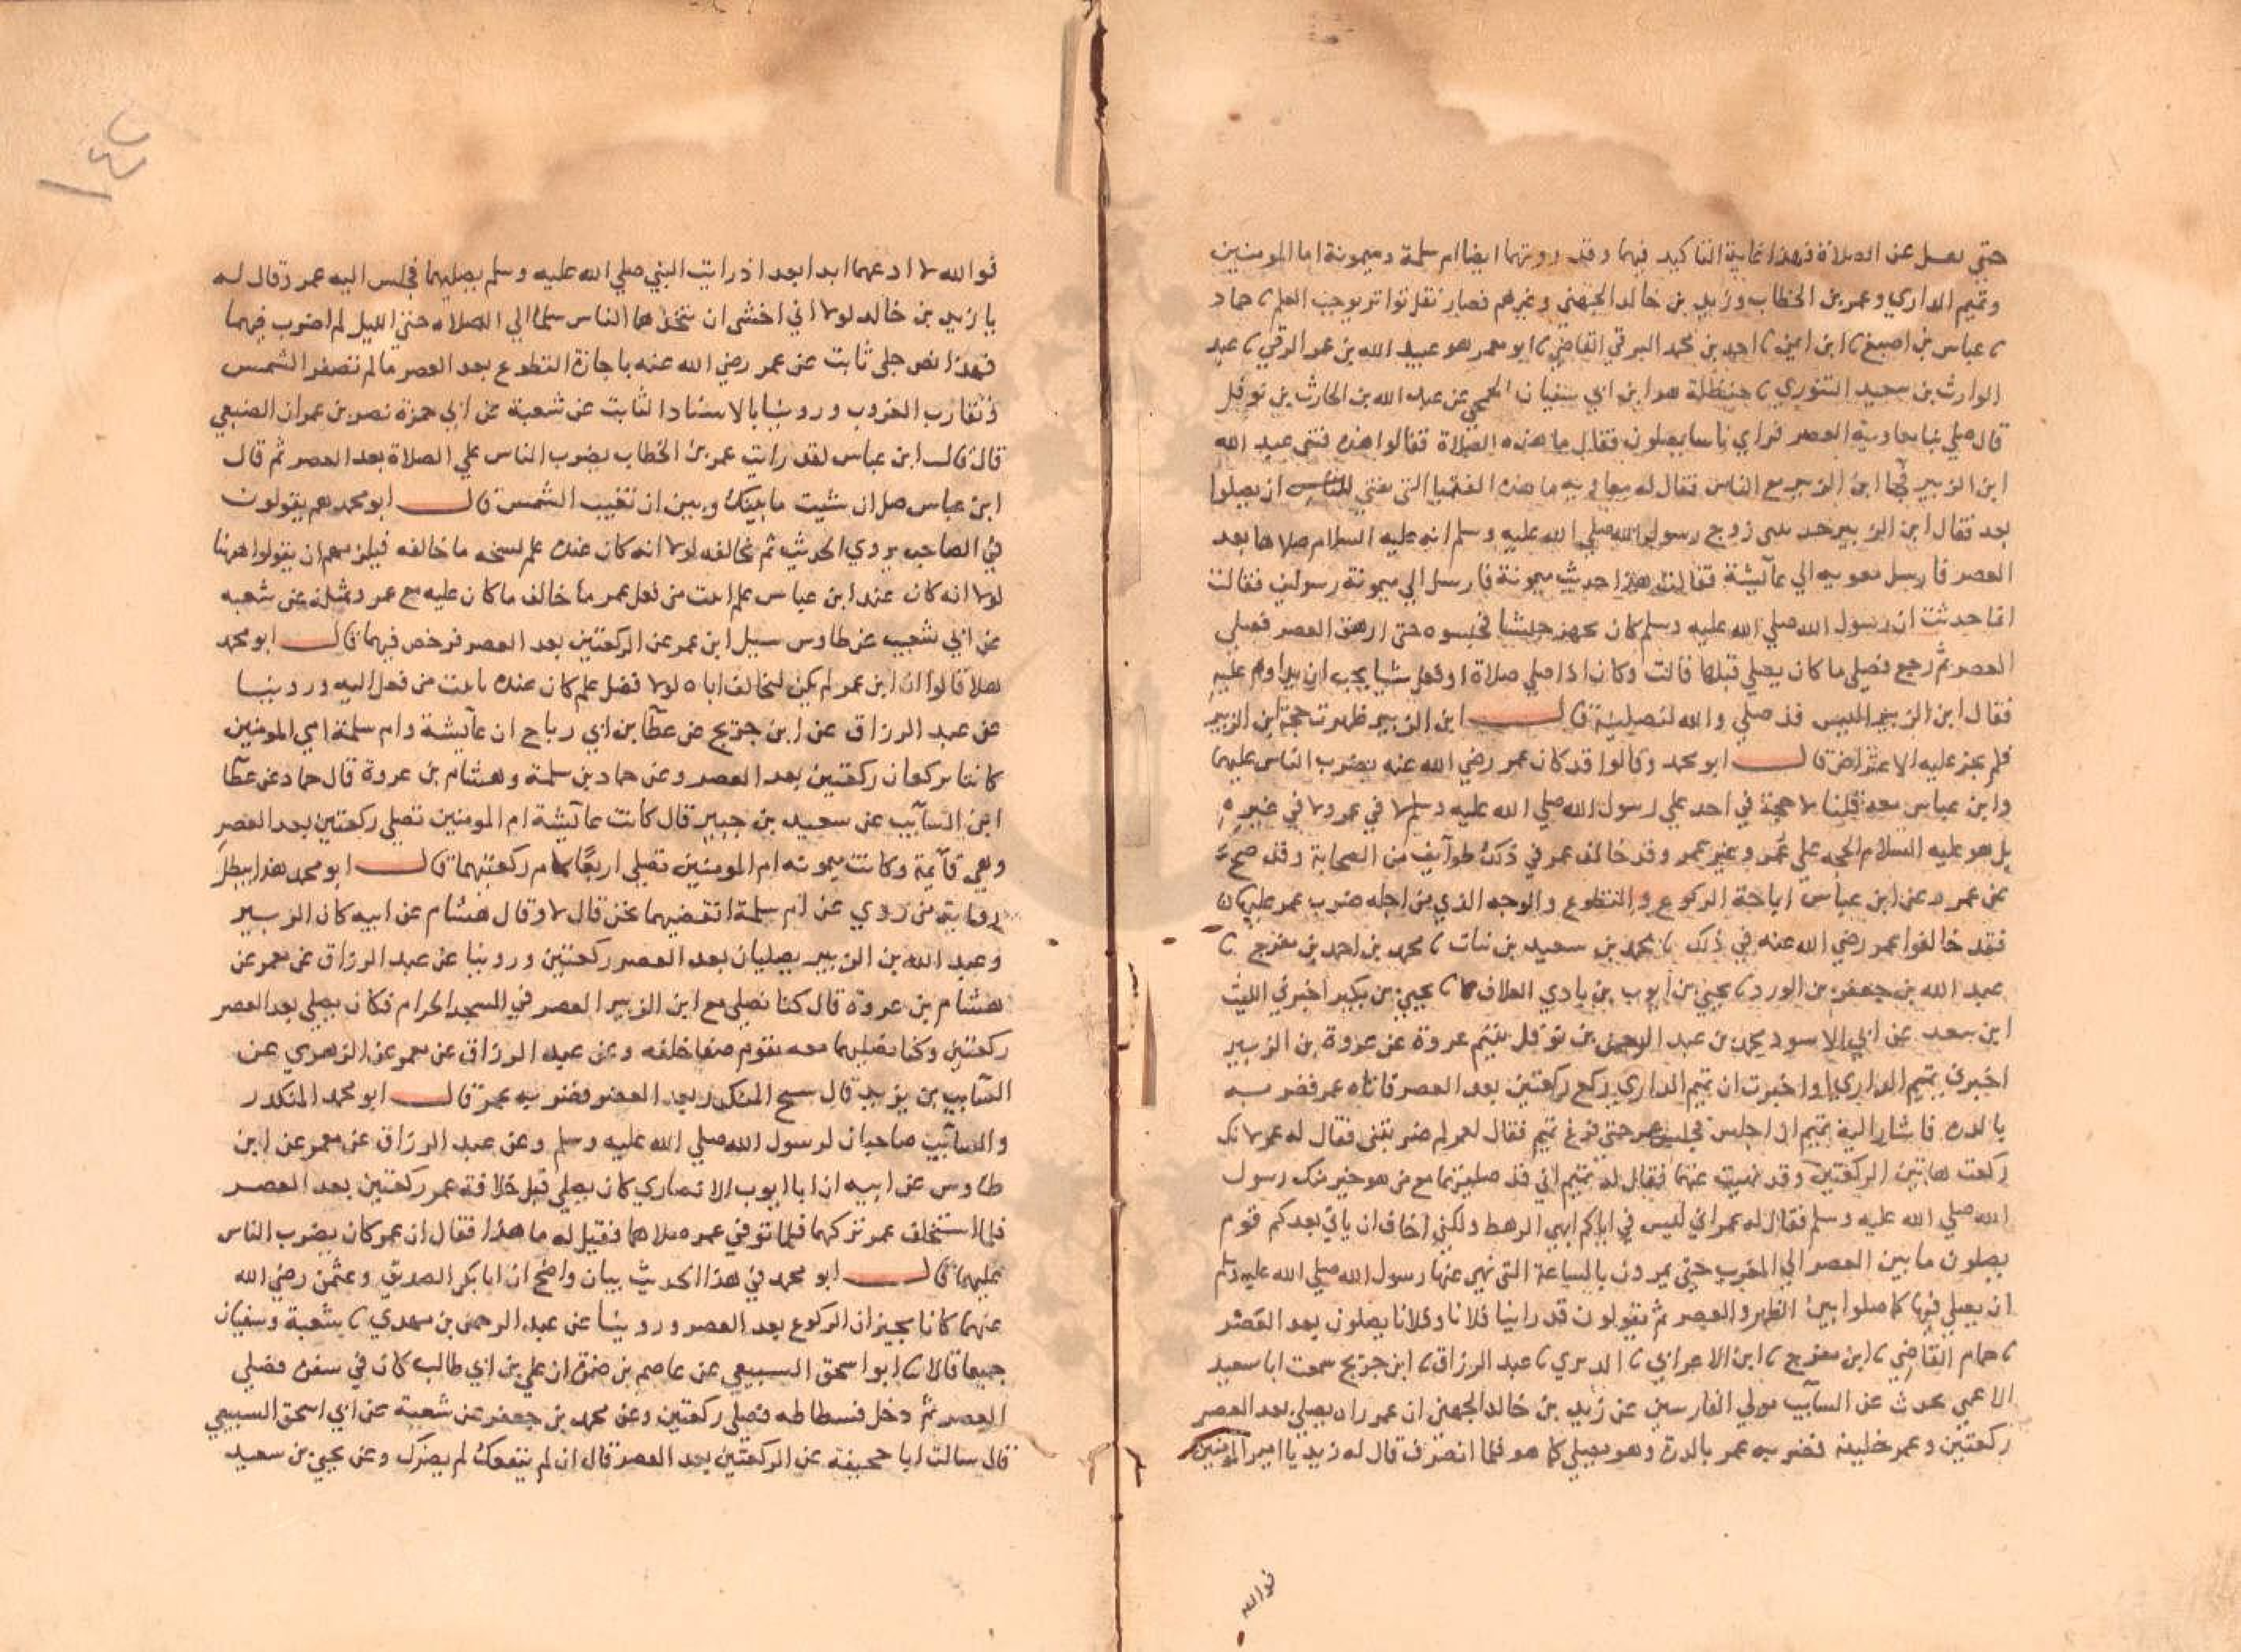 حتي يعمل عن الصلاة فهذا غاية التاكيد فيهما وقد روتهما ايضا ام سلمة وميمونة اما المومنين
وتميم الداري وعمر بن الخطاب وزيد بن خالد الجهني وغيرهم فصار نقل تواتر يوجب العلم نا حماد
نا عباس بن اصبغ نا ابن ايمن نا احمد بن محمد البرقي القاضي نا ابو معمر هو عبيد الله بن عمر الرقي نا عبد
الوارث بن سعيد التنوري نا حنظلة هو ابن ابي سفيان الجمحي عن عبد الله بن الحارث بن نوفل
قال صلي بنا معاوية العصر فراي ناسا يصلون فقال ما هذه الصلاة فقالوا هذه فتي عبد الله
ابن الزبير فجا ابن الزبير مع الناس فقال له معاويه ما هذه الفتيا التي تفتي للناس ان يصلوا
بعد فقال ابن الزبير حدثتني زوج رسول الله صلي الله عليه وسلم انه عليه السلام صلاها بعد
العصر فارسل معويه الي عآئشة فقالت هذا حديث ميمونة فارسل الي ميمونة رسولين فقالت
انما حدثت ان رسول الله صلي الله عليه وسلم كان يجهز جيشا فحبسوه حتي ارهق العصر فصلي
العصر ثم رجع فصلي ما كان يصلي قبلها قالت وكان اذا صلي صلاة او فعل شيا يحب ان يداوم عليه
فقال ابن الزبير اليس قد صلي والله لنصلينه قال ابن الزبير ظهرت حجة ابن الزبير
فلم يجز عليه الاعتراض قال ابو محمد وقالوا قد كان عمر رضي الله عنه يضرب الناس عليهما
وابن عباس معه قلنا لا حجة في احد علي رسول الله صلي الله عليه وسلم لا في عمر ولا في غيره
بل هو عليه السلام الحجه علي عمر وغير عمر وقد خالف عمر في ذلك طوآيف من الصحابة وقد صح
عن عمر وعن ابن عباس اباحة الركوع والتطوع والوجه الذي من اجله ضرب عمر عليهما
فقد خالفوا عمر رضي الله عنه في ذلك نا محمد بن سعيد بن نبات نا محمد بن احمد بن مفرج نا
عبد الله بن جعفر بن الورد نا يحيي بن ايوب بن بادي العلاف نا يحيي بن بكير اخبرني الليث
ابن سعد عن ابي الاسود محمد بن عبد الرحمن بن نوفل يتيم عروة عن عروة بن الزبير
اخبرني تميم الداري او اخبرت ان تميم الداري ركع ركعتين بعد العصر فاتاه عمر فضربه
بالدره فاشار اليه تميم ان اجلس فجلس عمر حتي فرغ تميم فقال لعمر لم ضربتني فقال له عمر لانك
ركعت هاتين الركعتين وقد نهيت عنهما فقال له تميم اني قد صليتهما مع من هو خير منك رسول
الله صلي الله عليه وسلم فقال له عمر اني ليس بي اياكم ايها الرهط ولكني اخاف ان ياتي بعدكم قوم
يصلون ما بين العصر الي المغرب حتي يمرون بالساعة التي نهي عنها رسول الله صلي الله عليه وسلم
ان يصلي فيها كما صلوا بين الظهر والعصر ثم يقولون قد راينا فلانا وفلانا يصلون بعد العصر
نا حمام القاضي نا ابن مفرج نا ابن الاعرابي نا الدبري نا عبد الرزاق نا ابن جريج سمعت ابا سعيد
الاعمي يحدث عن السآيب مولي الفارسيين عن زيد بن خالد الجهني ان عمر راه يصلي بعد العصر
ركعتين وعمر خليفه فضربه عمر بالدرة وهو يصلي كما هو فلما انصرف قال له زيد يا امير المومنين
فوالله
١٤٥
فوالله لا ادعهما ابدا بعد اذ رايت النبي صلي الله عليه وسلم يصليهما فجلس اليه عمر وقال له
يا زيد بن خالد لولا اني اخشي ان يتخذها الناس سلما الي الصلاه حتي الليل لم اضرب فيهما
فهذا نص جلي ثابت عن عمر رضي الله عنه باجازة التطوع بعد العصر ما لم تصفر الشمس
وتقارب الغروب وروينا بالاسناد الثابت عن شعبة عن ابي حمزة نصر بن عمران الضبعي
قال قال ابن عباس لقد رايت عمر بن الخطاب يضرب الناس علي الصلاة بعد العصر ثم قال
ابن عباس صل ان شيت ما بينك وبين ان تغيب الشمس قال ابو محمد هم يقولون
في الصاحب يروي الحديث ثم يخالفه لولا انه كان عنده علم نسخه ما خالفه فيلزمهم ان يقولوا ههنا
لولا انه كان عند ابن عباس علم اثبت من فعل عمر ما خالف ما كان عليه مع عمر وبمثله عن شعبه
عن ابي شعيب عن طاوس سيل ابن عمر عن الركعتين بعد العصر فرخص فيهما قال ابو محمد
هلا قالوا ان ابن عمر لم يكن ليخالف اباه لولا فضل علم كان عنده باثبت من فعل ابيه وروينا
عن عبد الرزاق عن ابن جريج عن عطآ بن ابي رباح ان عآيشة وام سلمة امي المومنين
كانتا يركعان ركعتين بعد العصر وعن حماد بن سلمة وهشام بن عروة قال حماد عن عطآ
ابن السآيب عن سعيد بن جبير قال كانت عآيشة ام المومنين تصلي ركعتين بعد العصر
وهي قآيمة وكانت ميمونه ام المومنين تصلي اربعًا ركعتيهما قال ابو محمد هذا يبطل
رواية من روي عن ام سلمة انقضيهما نحن قال لا وقال هشام عن ابيه كان الزبير
وعبد الله بن الزبير يصليان بعد العصر ركعتين وروينا عن عبد الرزاق عن معمر عن
هشام بن عروة قال كنا نصلي مع ابن الزبير العصر في المسجد الحرام فكان يصلي بعد العصر
ركعتين وكنا نصليهما معه نقوم صفا خلفه وعن عبد الرزاق عن معمر عن الزهري عن
السآيب بن يزيد قال سبح المنكدر بعد العصر فضربه عمر قال ابو محمد المنكدر
والسآيب صاحبان لرسول الله صلي الله عليه وسلم وعن عبد الرزاق عن معمر عن ابن
طاوس عن ابيه ان ابا ايوب الانصاري كان يصلي قبل خلافة عمر ركعتين بعد العصر
فلما استخلف عمر تركهما فلما توفي عمر صلاهما فقيل له ما هذا فقال ان عمر كان يضرب الناس
عليهما قال ابو محمد في هذا الحديث بيان واضح ان ابا بكر الصديق وعثمن رضي الله
عنهما كانا يجيزان الركوع بعد العصر وروينا عن عبد الرحمن بن مهدي نا شعبة وسفيان
جميعا قالا نا ابو اسحق السبيعي عن عاصم بن ضمرة ان علي بن ابي طالب كان في سفر فصلي
العصر ثم دخل فسطاطه فصلي ركعتين وعن محمد بن جعفر عن شعبة عن ابي اسحق السبيعي
قال سالت ابا جحيفة عن الركعتين بعد العصر قال ان لم ينفعك لم يضرك وعن يحيي بن سعيد